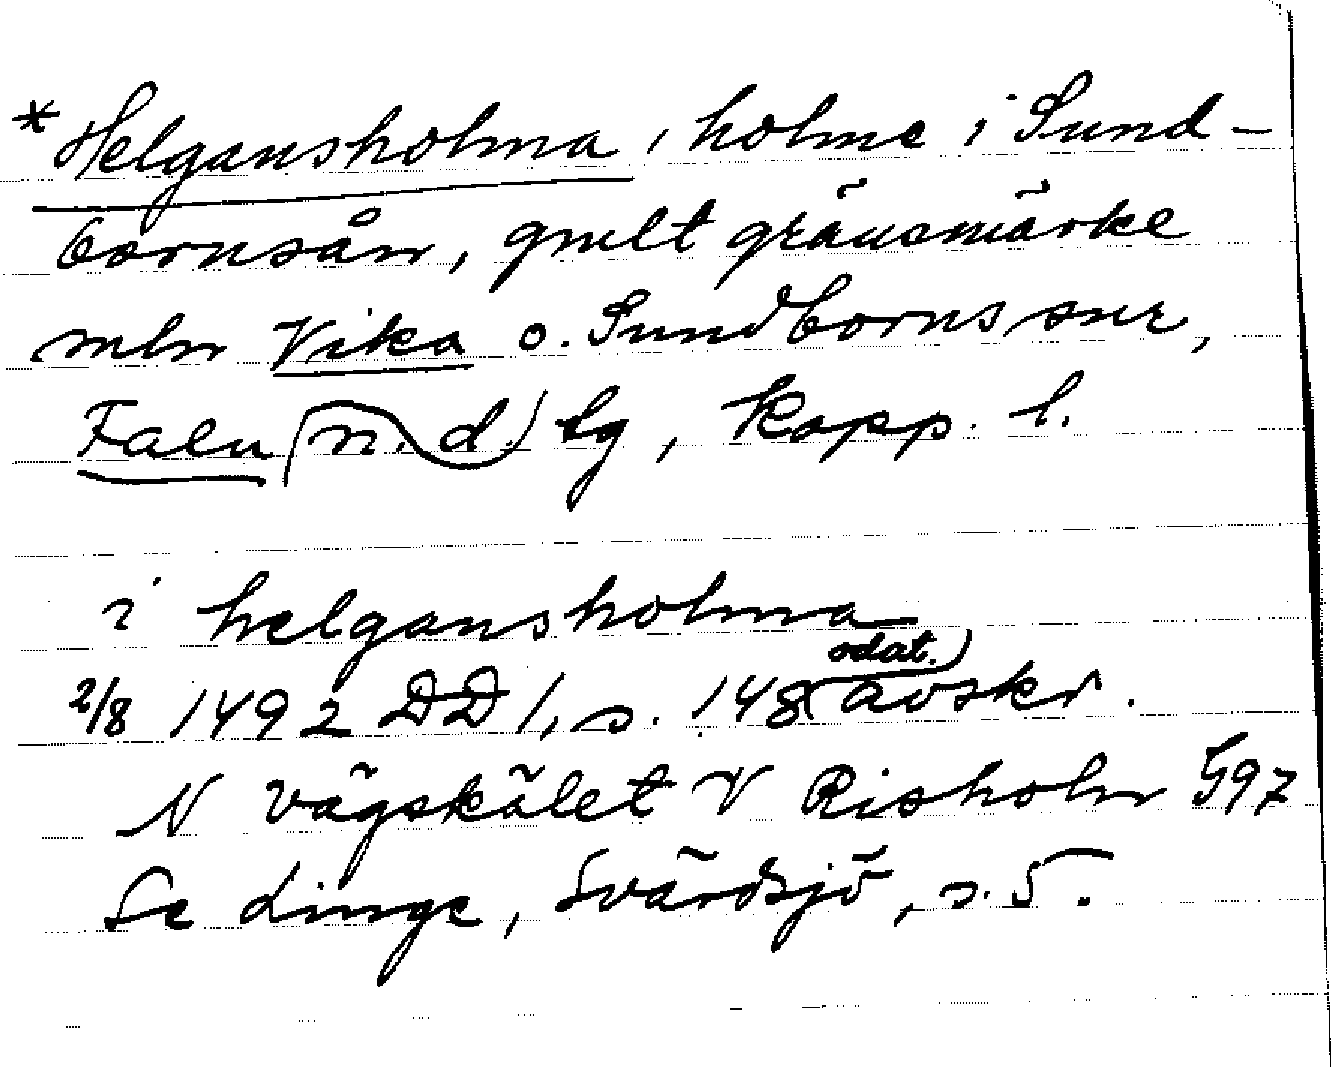 * Helgansholma, holme i Sund-
bornsån, gmlt gränsmärke
mln Vika o. Sundborns snr,
Falu (n. d.) tg, Kopp. l.
i helgansholma
2/8 1492 DD 1, s. 148 (odat.) avskr.
N Vägskälet V Risholn G97
Se Linge, Svärdsjö, s. 5.